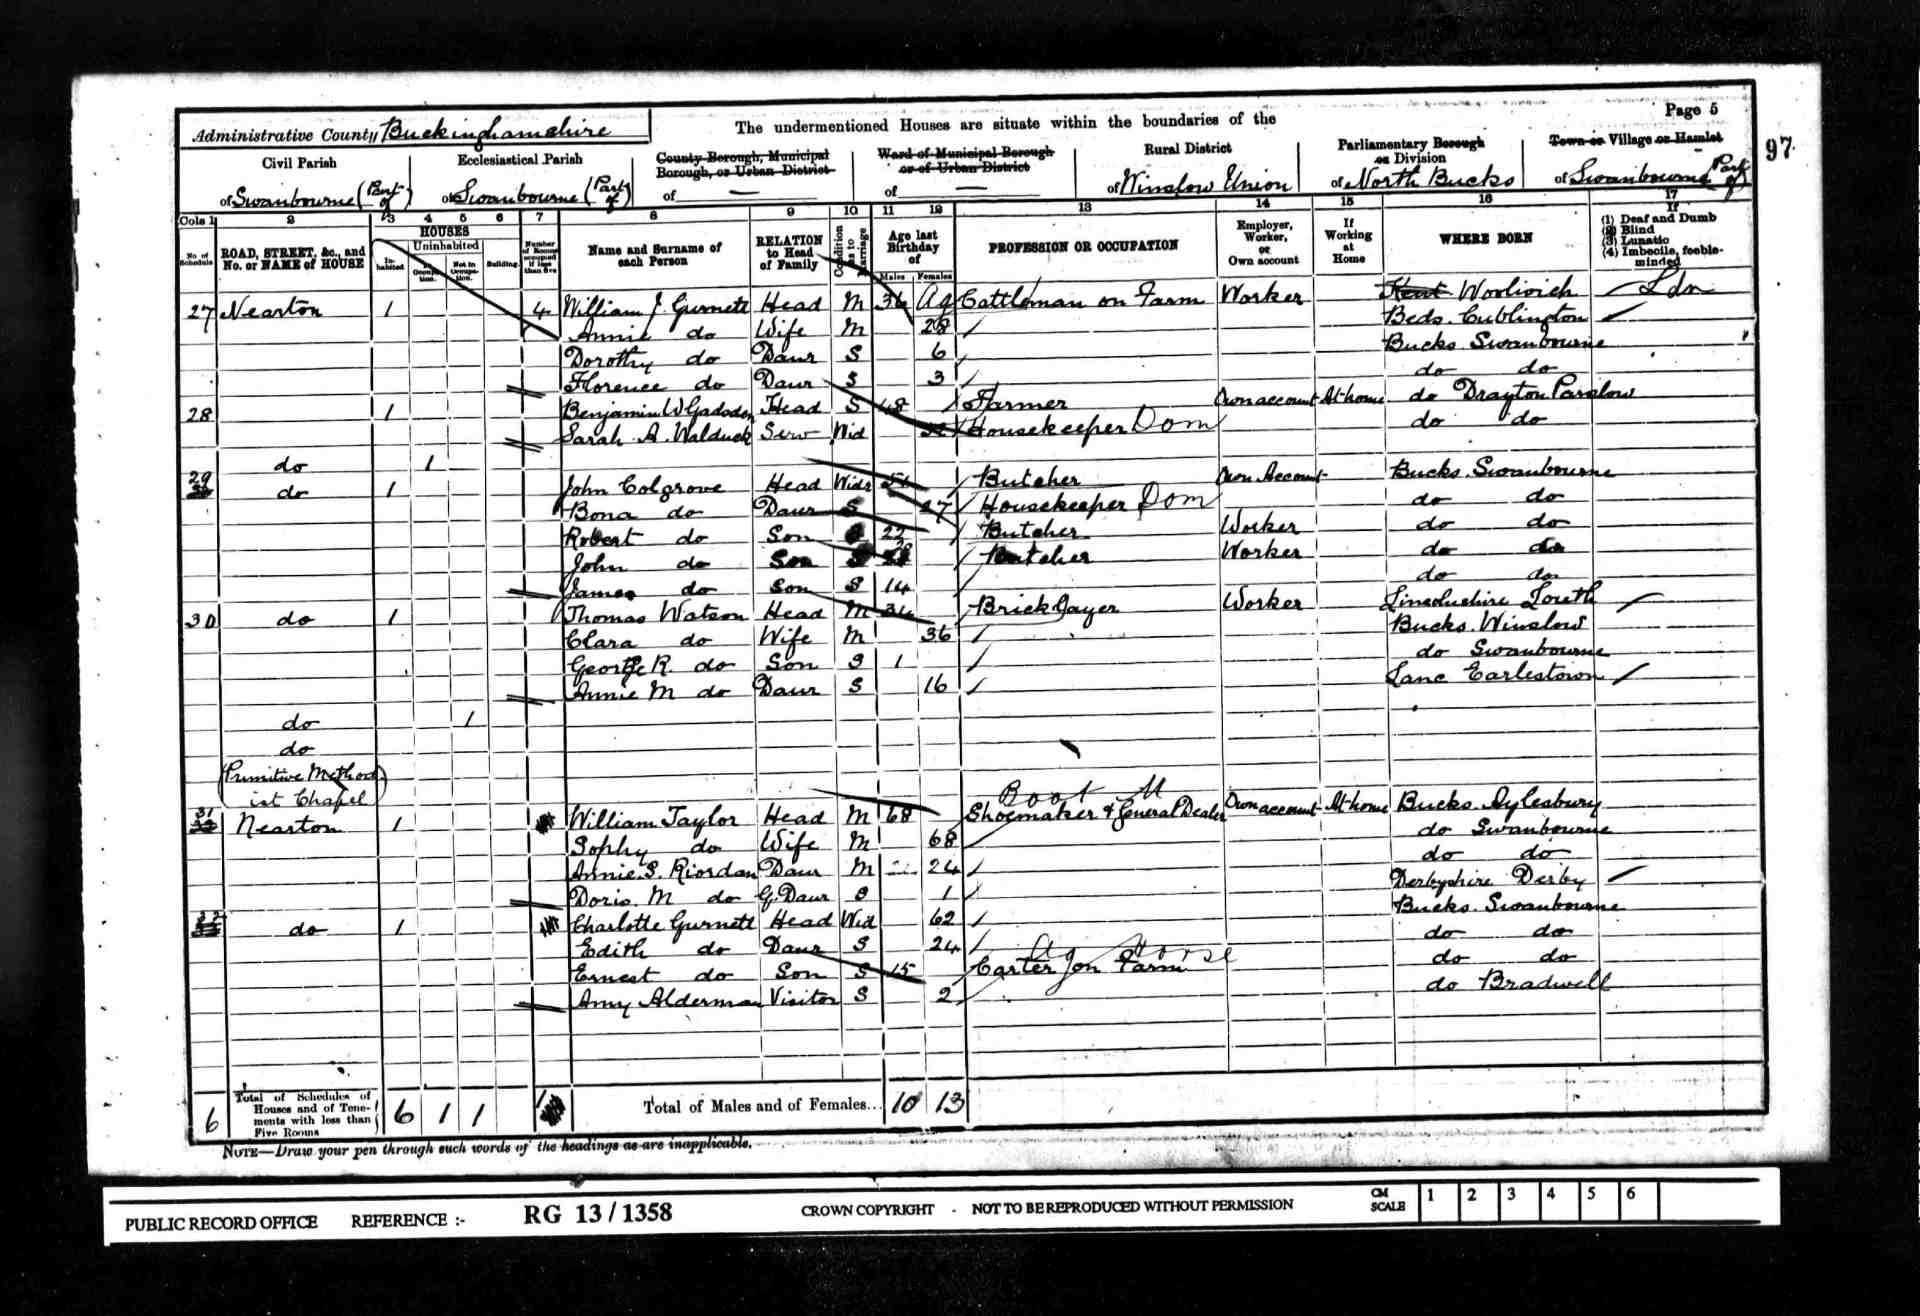 Page 5
97
Administrative County Buckinghamshire
The undermentioned Houses are situate within the boundaries of the
Civil Parish
of Swanbourne (Part of)
Ecclesiastical Parish
of Swanbourne (Part of)
County Borough, Municipal Borough, or Urban District
of —
Ward of Municipal Borough or of Urban District
of —
Rural District
of Winslow Union
Parliamentary Borough or Division
of North Bucks
Town or Village or Hamlet
of Swanbourne Part of
Cols 1 2 3 4 5 6 7 8 9 10 11 12 13 14 15 16 17
No. of Schedule
ROAD, STREET, &c., and No. or NAME of HOUSE
HOUSES
Inhabited
Uninhabited
In Occupation.
Not in Occupation.
Building.
Number of Rooms occupied if less than five
Name and Surname of each Person
RELATION to Head of Family
Condition as to Marriage
Age last Birthday of
Males Females
PROFESSION OR OCCUPATION
Employer, Worker, or Own account
If Working at Home
WHERE BORN
If
(1) Deaf and Dumb
(2) Blind
(3) Lunatic
(4) Imbecile, feeble-minded
27 Nearton 1 4 William J. Gurnett Head M 36 Ag Cattleman on Farm Worker Kent Woolwich Ldn
Annie do Wife M 28 Beds. Cublington
Dorothy do Daur S 6 Bucks Swanbourne
Florence do Daur S 3 do do
28 1 Benjamin W Gadsdon Head S 48 Farmer Own account At home do Drayton Parslow
Sarah A. Walduck Serv Wid Housekeeper Dom do do
do 1
29 do 1 John Colgrove Head Widr 51 Butcher Own Account Bucks. Swanbourne
Bona do Daur S 27 Housekeeper Dom do do
Robert do Son 22 Butcher Worker do do
John do Son S Butcher Worker do do
James do Son S 14 do do
30 do 1 Thomas Watson Head M 34 Bricklayer Worker Lincolnshire Louth
Clara do Wife M 36 Bucks. Winslow
George R. do Son S 1 do Swanbourne
Annie M do Daur S 16 Lanc Earlestown
do 1
do
(Primitive Method
ist Chapel)
Boot M
31 Nearton 1 William Taylor Head M 68 Shoemaker & General Dealer Own account At home Bucks. Aylesbury
Sophy do Wife M 68 do Swanbourne
Annie. S. Riordan Daur M 24 do do
Doris. M do G. Daur S 1 Derbyshire Derby
32 do 1 Charlotte Gurnett Head Wid 62 Bucks. Swanbourne
Edith do Daur S 24 do do
Ag Horse
Ernest do Son S 15 Carter on Farm do do
Amy Alderman Visitor S 2 do Bradwell
6 Total of Schedules of Houses and of Tenements with less than Five Rooms 6 1 1 Total of Males and of Females... 10 13
NOTE—Draw your pen through such words of the headings as are inapplicable.
PUBLIC RECORD OFFICE REFERENCE :- RG 13 / 1358 CROWN COPYRIGHT - NOT TO BE REPRODUCED WITHOUT PERMISSION CM SCALE 1 2 3 4 5 6